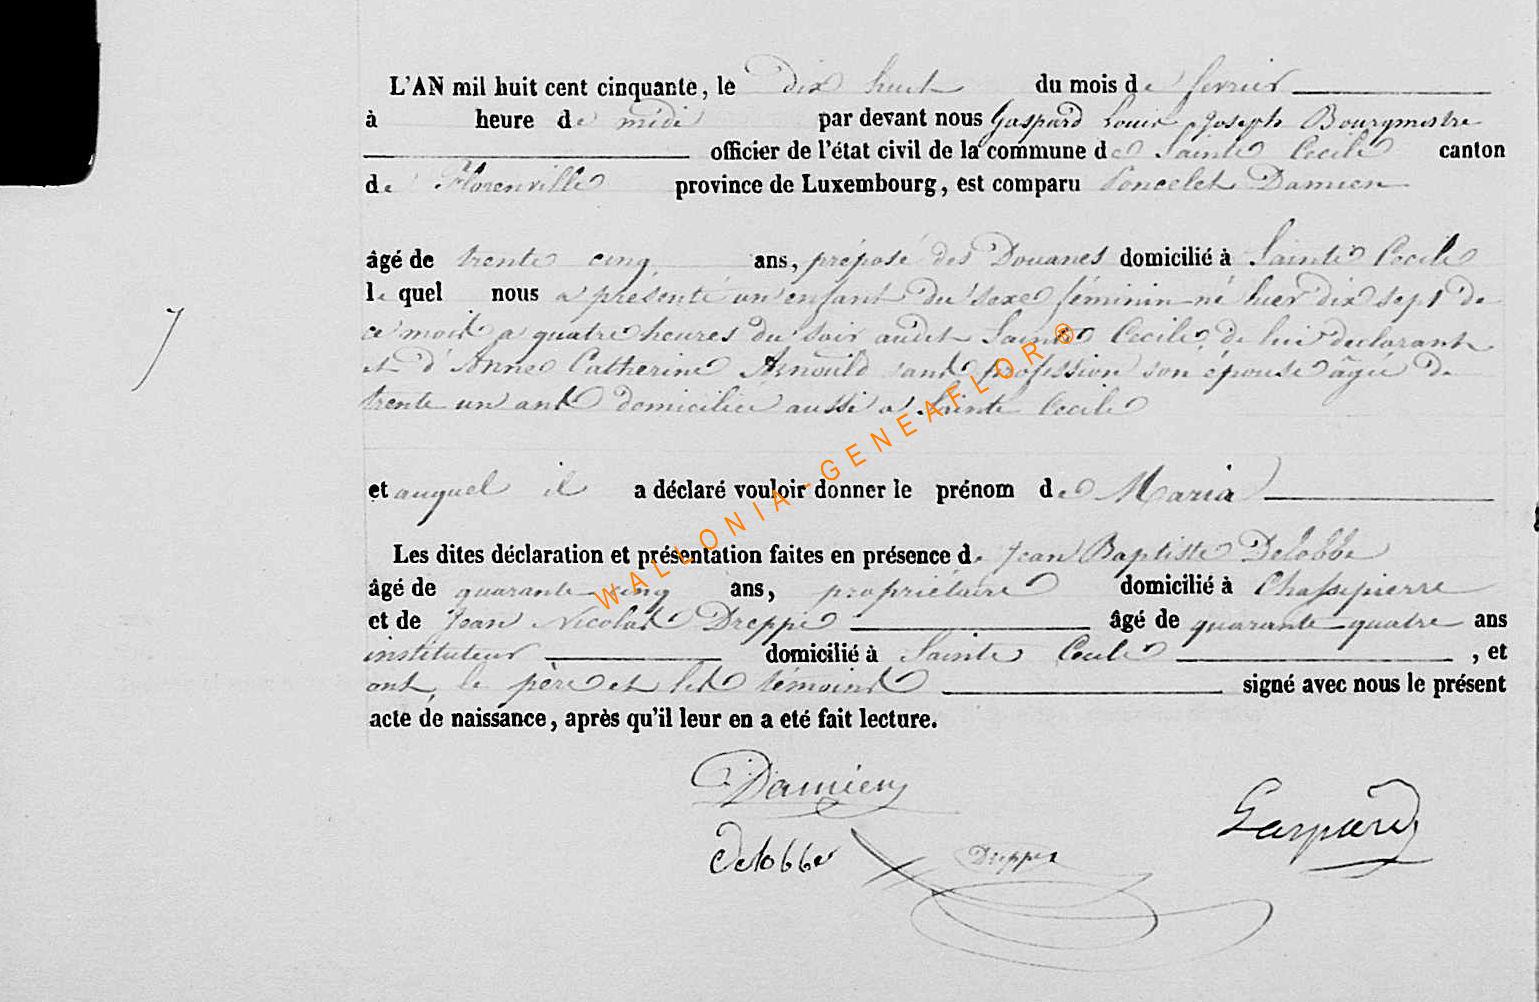 L'AN mil huit cent cinquante, le dix huit du mois de fevrier
à heure de midi par devant nous Gaspard Louis Joseph Bourgmestre
officier de l'état civil de la commune de Sainte Cecile canton
de Florenville province de Luxembourg, est comparu Poncelet Damien
âgé de trente cinq ans, préposé des Douanes domicilié à Sainte Cecile
le quel nous a présenté un enfant du sexe féminin né hier dix sept de
ce mois a quatre heures du soir audit Sainte Cecile, de lui declarant
et d'Anne Catherine Arnould sans profession son épouse âgée de
trente un ans domiciliée aussi a Sainte Cecile
7
et auquel il a déclaré vouloir donner le prénom de Maria
Les dites déclaration et présentation faites en présence de Jean Baptiste Delobbe
âgé de quarante cinq ans, propriétaire domicilié à Chassepierre
et de Jean Nicolas Dreppe âgé de quarante quatre ans
instituteur domicilié à Sainte Cecile , et
ont le père et les témoins signé avec nous le présent
acte de naissance, après qu'il leur en a eté fait lecture.
Damien
Gaspard
Delobbe
Dreppe
WALLONIA-GENEAFLOR®